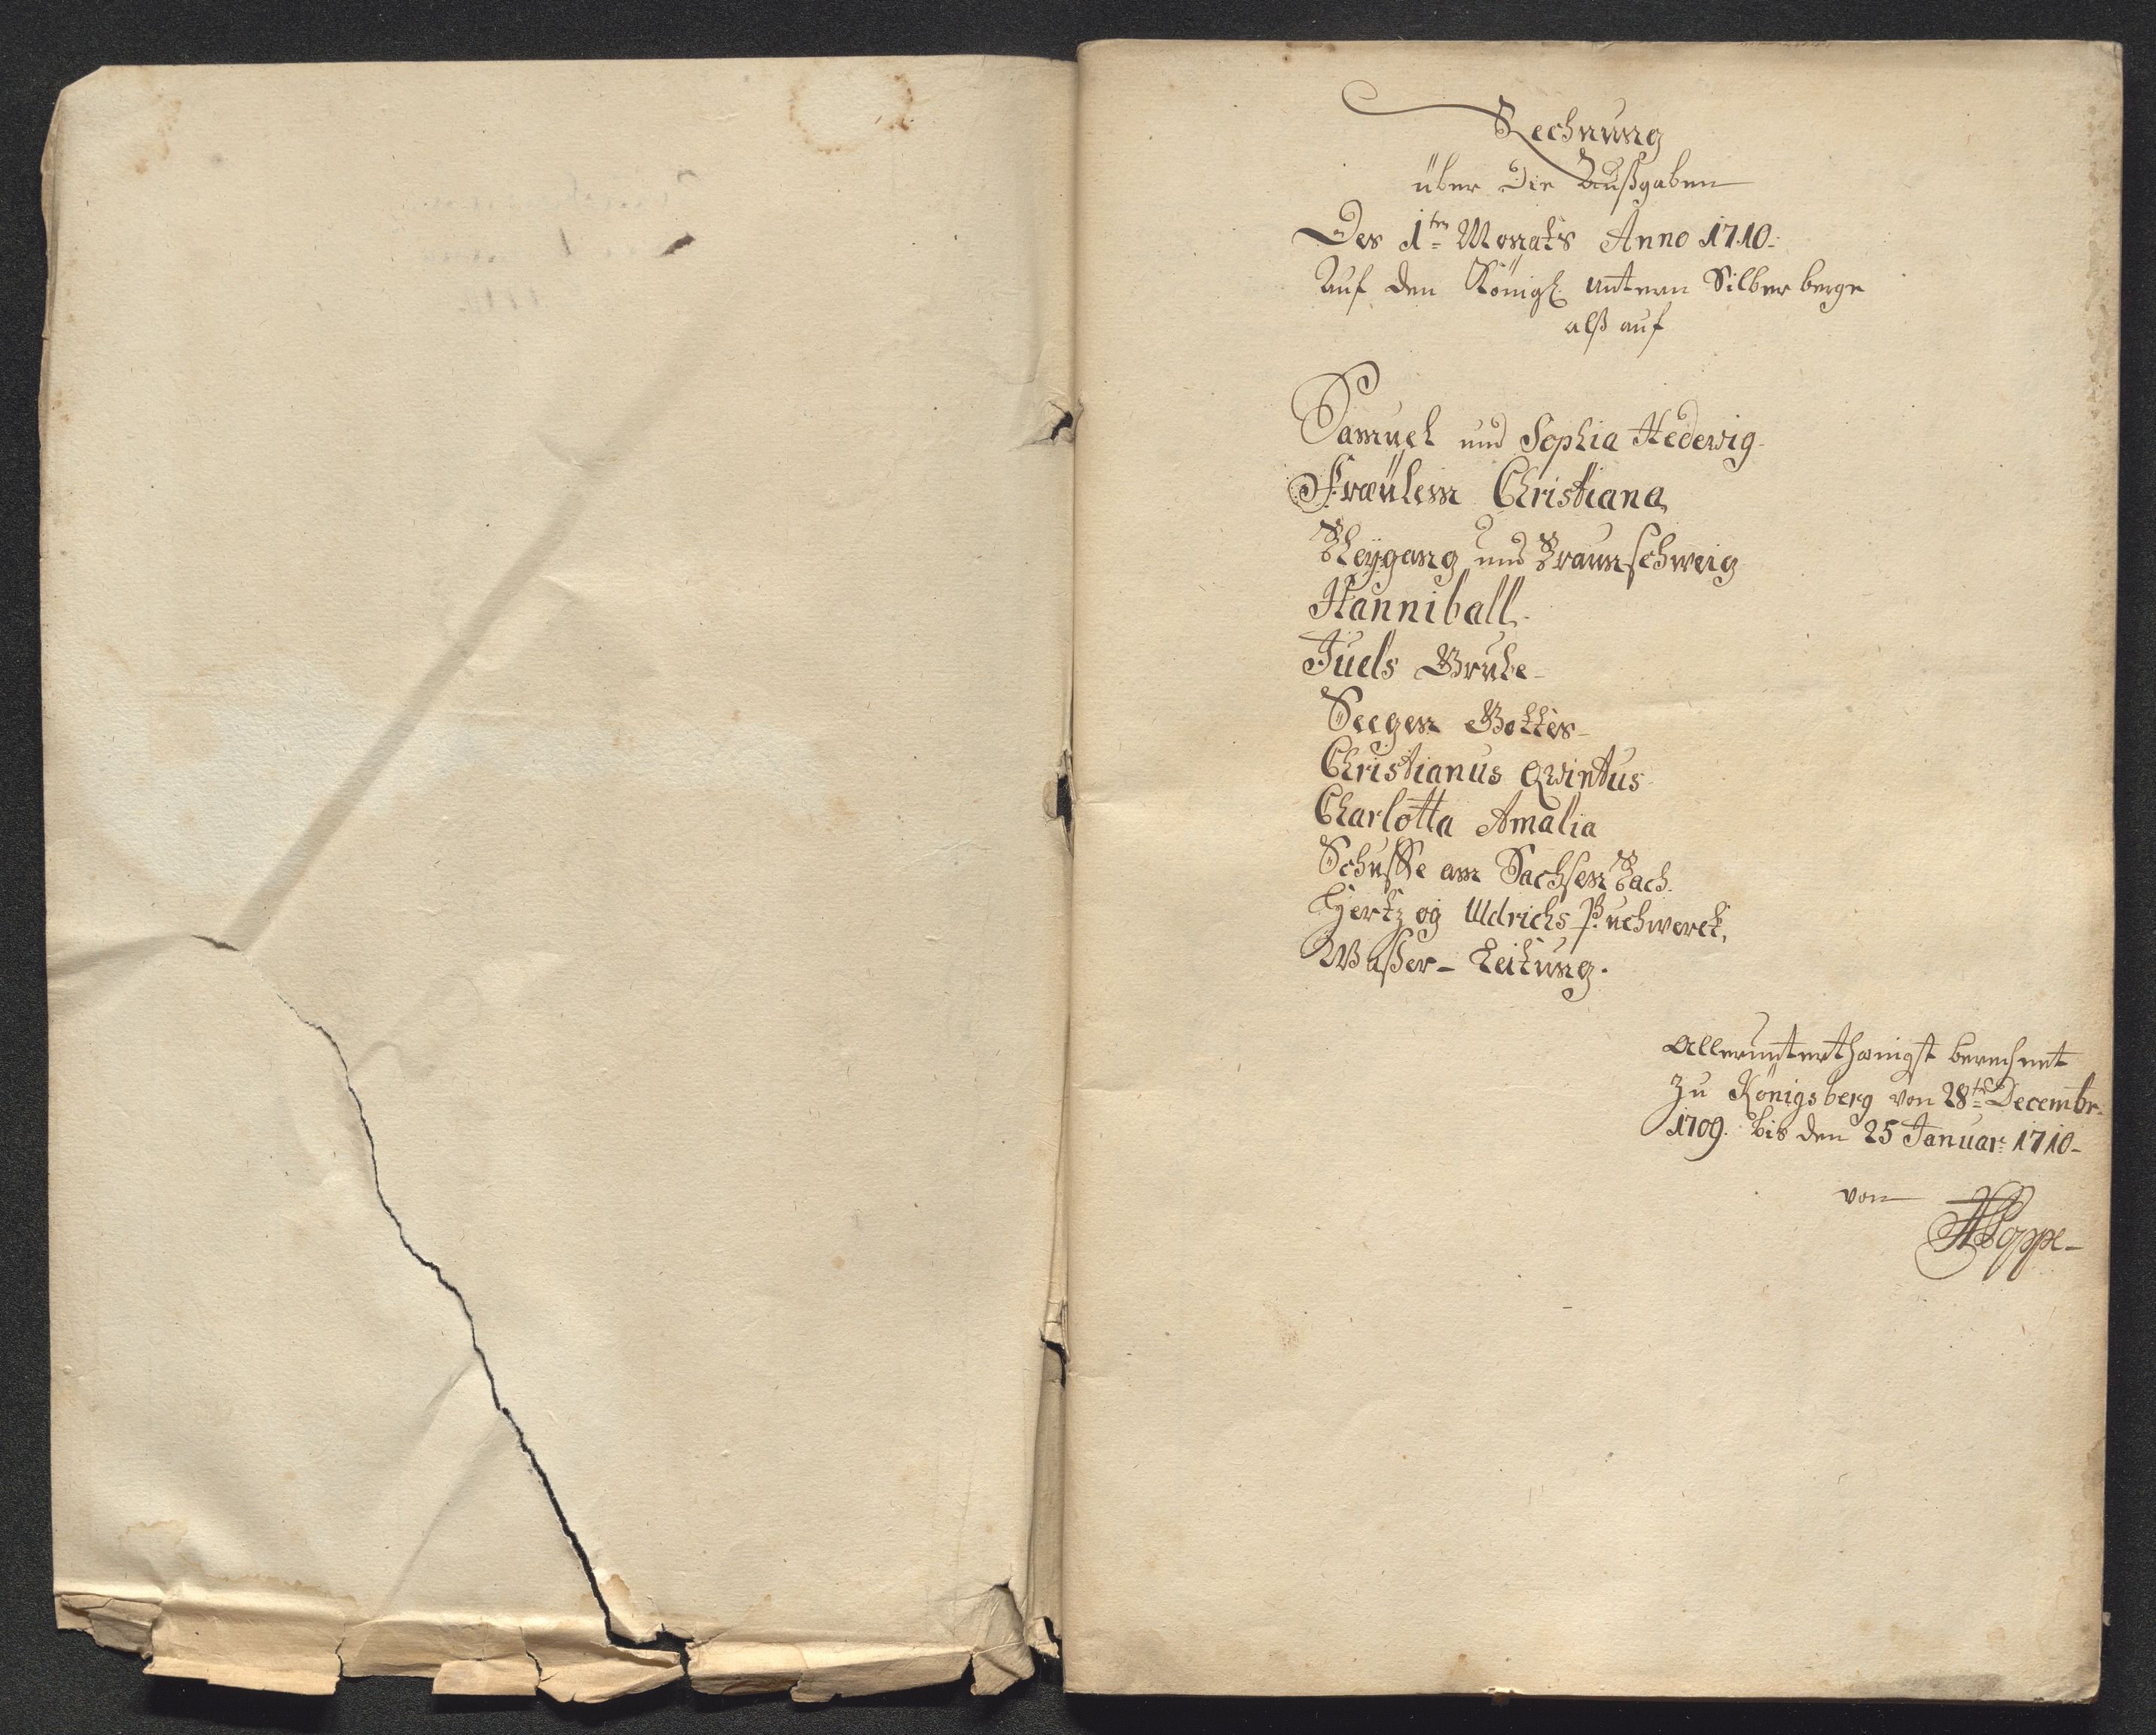 Rechnung
über Die Außgaben
Des 1ten Monats Anno 1710.
Auf den Königl. untern Silber berge
alß auf
Samuel und Sophia Hedewig
Fräulein Christiana
Bleygang und Braunschweig
Hanniball.
Juels Grube
Seegen Gottes
Christianus Qvintus
Charlotta Amalia
am Sachsen Bach.
Hertzog Uldrichs Puchwerck,
Waßer-Leitung.
Allerunterthänigst berechnet
Zu Königsberg von 28t Decembr:
1709. bis den 25 Januar: 1710
von
Poppe